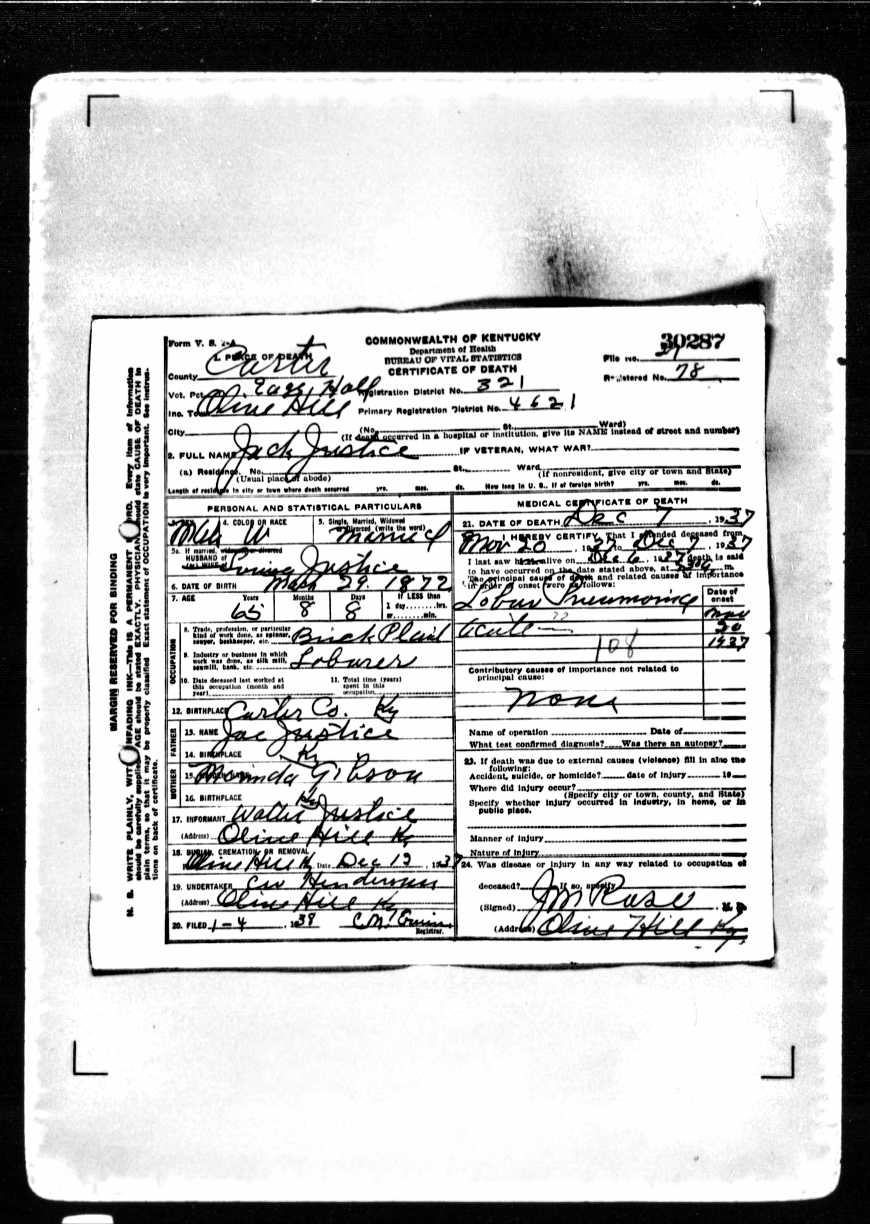 Form V. S. 1-A
COMMONWEALTH OF KENTUCKY
Department of Health
BUREAU OF VITAL STATISTICS
CERTIFICATE OF DEATH
30287
File No.
Registered No. 78
1. PLACE OF DEATH
County Carter
Vot. Pct. Hall Registration District No. 321
Inc. To Olive Hill Primary Registration District No. 4621
City (No. St. Ward)
(If death occurred in a hospital or institution, give its NAME instead of street and number)
2. FULL NAME Jack Justice IF VETERAN, WHAT WAR?
(a) Residence. No. St., Ward
(Usual place of abode) (If nonresident, give city or town and State)
Length of residence in city or town where death occurred yrs. mos. ds. How long in U. S., if of foreign birth? yrs. mos. ds.
PERSONAL AND STATISTICAL PARTICULARS
4. COLOR OR RACE W
5. Single, Married, Widowed
Divorced (write the word) Married
5a. If married, widowed or divorced
HUSBAND of
Justice
6. DATE OF BIRTH March 29. 1872
7. AGE Years Months Days If LESS than
65 8 8 1 day hrs.
or min.
OCCUPATION
8. Trade, profession, or particular
kind of work done, as spinner,
sawyer, bookkeeper, etc. Brick Plant
9. Industry or business in which
work was done, as silk mill,
sawmill, bank, etc. Laborer
10. Date deceased last worked at
this occupation (month and
year)
11. Total time (years)
spent in this
occupation
12. BIRTHPLACE Carter Co. Ky
FATHER
13. NAME Justice
14. BIRTHPLACE Ky
MOTHER
15. Gibson
16. BIRTHPLACE Ky
17. INFORMANT Justice
(Address) Olive Hill Ky
18. BURIAL, CREMATION, OR REMOVAL
Olive Hill K Date Dec 12, 1937
19. UNDERTAKER Henderson
(Address) Olive Hill Ky
20. FILED 1-4, 1938
Registrar.
MEDICAL CERTIFICATE OF DEATH
21. DATE OF DEATH Dec 7, 1937
I HEREBY CERTIFY, That I attended deceased from
Nov 20, 1937 to Dec 7, 1937
I last saw him alive on Dec 6, 1937 death is said
to have occurred on the date stated above, at m.
The principal cause of death and related causes of importance
in order of onset were as follows:
Date of
onset
Lobar Pneumonia
Nov
20
1937
acute
108
Contributory causes of importance not related to
principal cause:
None
Name of operation Date of
What test confirmed diagnosis? Was there an autopsy?
23. If death was due to external causes (violence) fill in also the
following:
Accident, suicide, or homicide? date of injury 19
Where did injury occur?
(Specify city or town, county, and State)
Specify whether injury occurred in industry, in home, or in
public place.
Manner of injury
Nature of injury
24. Was disease or injury in any way related to occupation of
deceased? If so, specify
(Signed) J M Rose M. D.
(Address) Olive Hill Ky
MARGIN RESERVED FOR BINDING